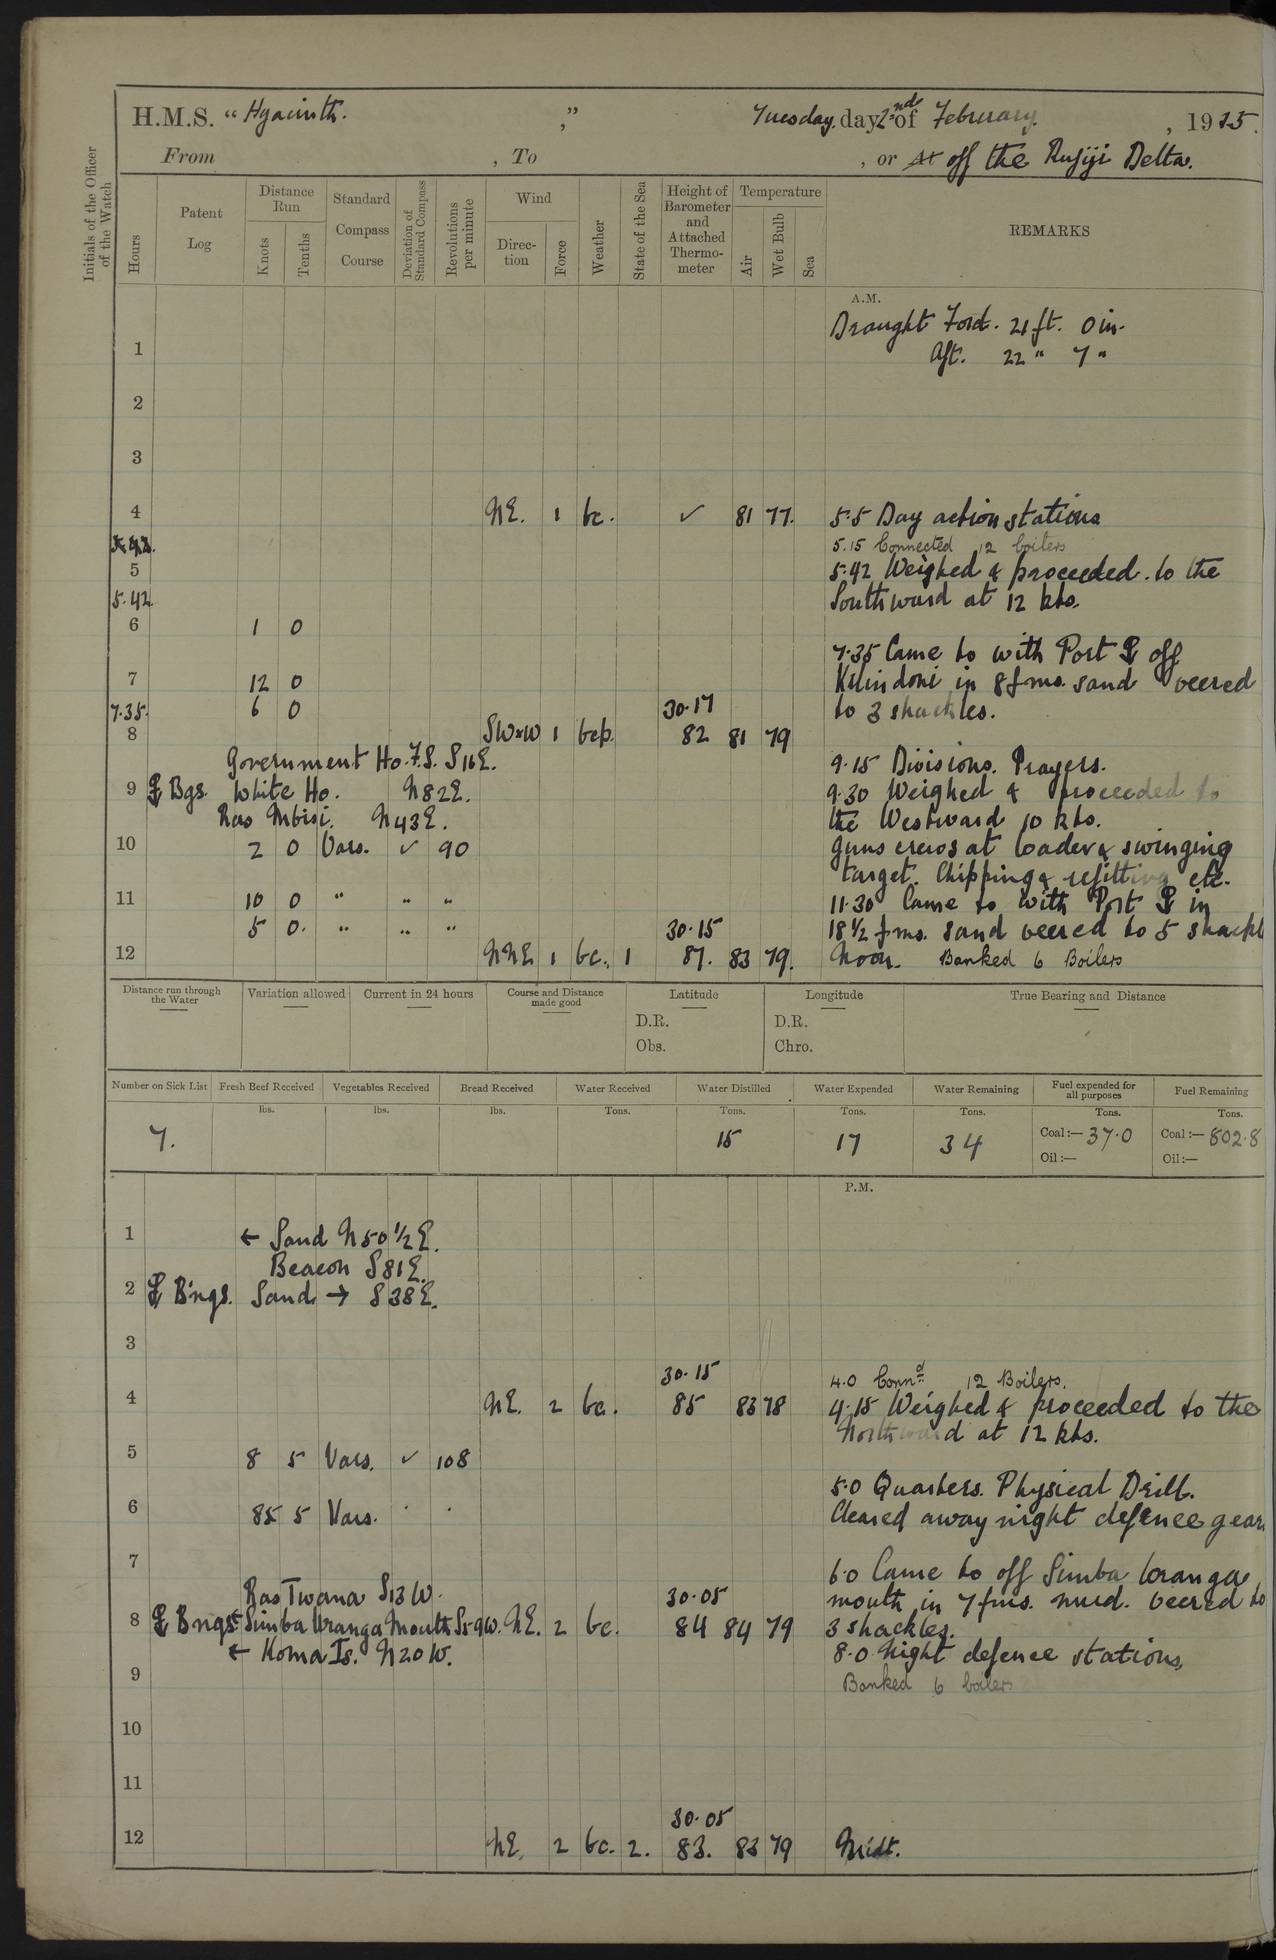 H.M.S. "Hyacinth. ," Tuesday day 2nd of February, 1915.
From , To , or At off the Rufiji Delta.
Initials of the Officer of the Watch
Hours
Patent Log
Distance Run
Knots
Tenths
Standard Compass Course
Deviation of Standard Compass
Revolutions per minute
Wind
Direction
Force
Weather
State of the Sea
Height of Barometer and Attached Thermometer
Temperature
Air
Wet Bulb
Sea
REMARKS
A.M.
Draught Ford. 21 ft. 0 in.
1 Aft. 22 " 7 "
2
3
4 NE. 1 bc. ✓ 81 77. 5.5 Day action stations
5.42. 5.15 Connected 12 boilers
5 5.42 Weighed & proceeded to the
5.42 Southward at 12 kts.
6 1 0
7.35 Came to with Port ⚓ off
7 12 0 Kilindoni in 8 fms. sand veered
7.35. 6 0 30.17 to 3 shackles.
8 SW×W 1 bcp. 82 81 79
Government Ho. F.S. S16E. 9.15 Divisions. Prayers.
9 ⚓ Bgs. White Ho. N82E. 9.30 Weighed & proceeded to
Ras Mbisi. N43E. the Westward 10 kts.
10 2 0 Vars. ✓ 90 Guns crews at loader & swinging
target. Chipping & refitting etc.
11 10 0 " " " 11.30 Came to with Port ⚓ in
5 0. " " " 30.15 18½ fms. sand veered to 5 shackl
12 NNE 1 bc. 1 87. 83 79. Noon. Banked 6 Boilers
Distance run through the Water
Variation allowed
Current in 24 hours
Course and Distance made good
Latitude
D.R.
Obs.
Longitude
D.R.
Chro.
True Bearing and Distance
Number on Sick List
Fresh Beef Received
Vegetables Received
Bread Received
Water Received
Water Distilled
Water Expended
Water Remaining
Fuel expended for all purposes
Fuel Remaining
lbs. lbs. lbs. Tons. Tons. Tons. Tons. Tons. Tons.
7. 15 17 34 Coal:— 37.0 Coal:— 802.8
Oil:— Oil:—
P.M.
1 ← Sand N50½E.
Beacon S81E.
2 ⚓ B'ngs. Sand → S38E.
3
30.15 4.0 Connd 12 Boilers.
4 NE. 2 bc. 85 83 78 4.15 Weighed & proceeded to the
Northward at 12 kts.
5 8 5 Vars. ✓ 108
5.0 Quarters. Physical Drill.
6 5 Vars. . . Cleared away night defence gear.
7 6.0 Came to off Simba Uranga
Ras Twana S13W. 30.05 mouth in 7 fms. mud. veered to
8 ⚓ Bngs Simba Uranga Mouth S59W. NE. 2 bc. 84 84 79 3 shackles.
← Koma Is. N20W. 8.0 Night defence stations.
9 Banked 6 boilers
10
11
30.05
12 NE. 2 bc. 2. 83. 83 79 Midt.